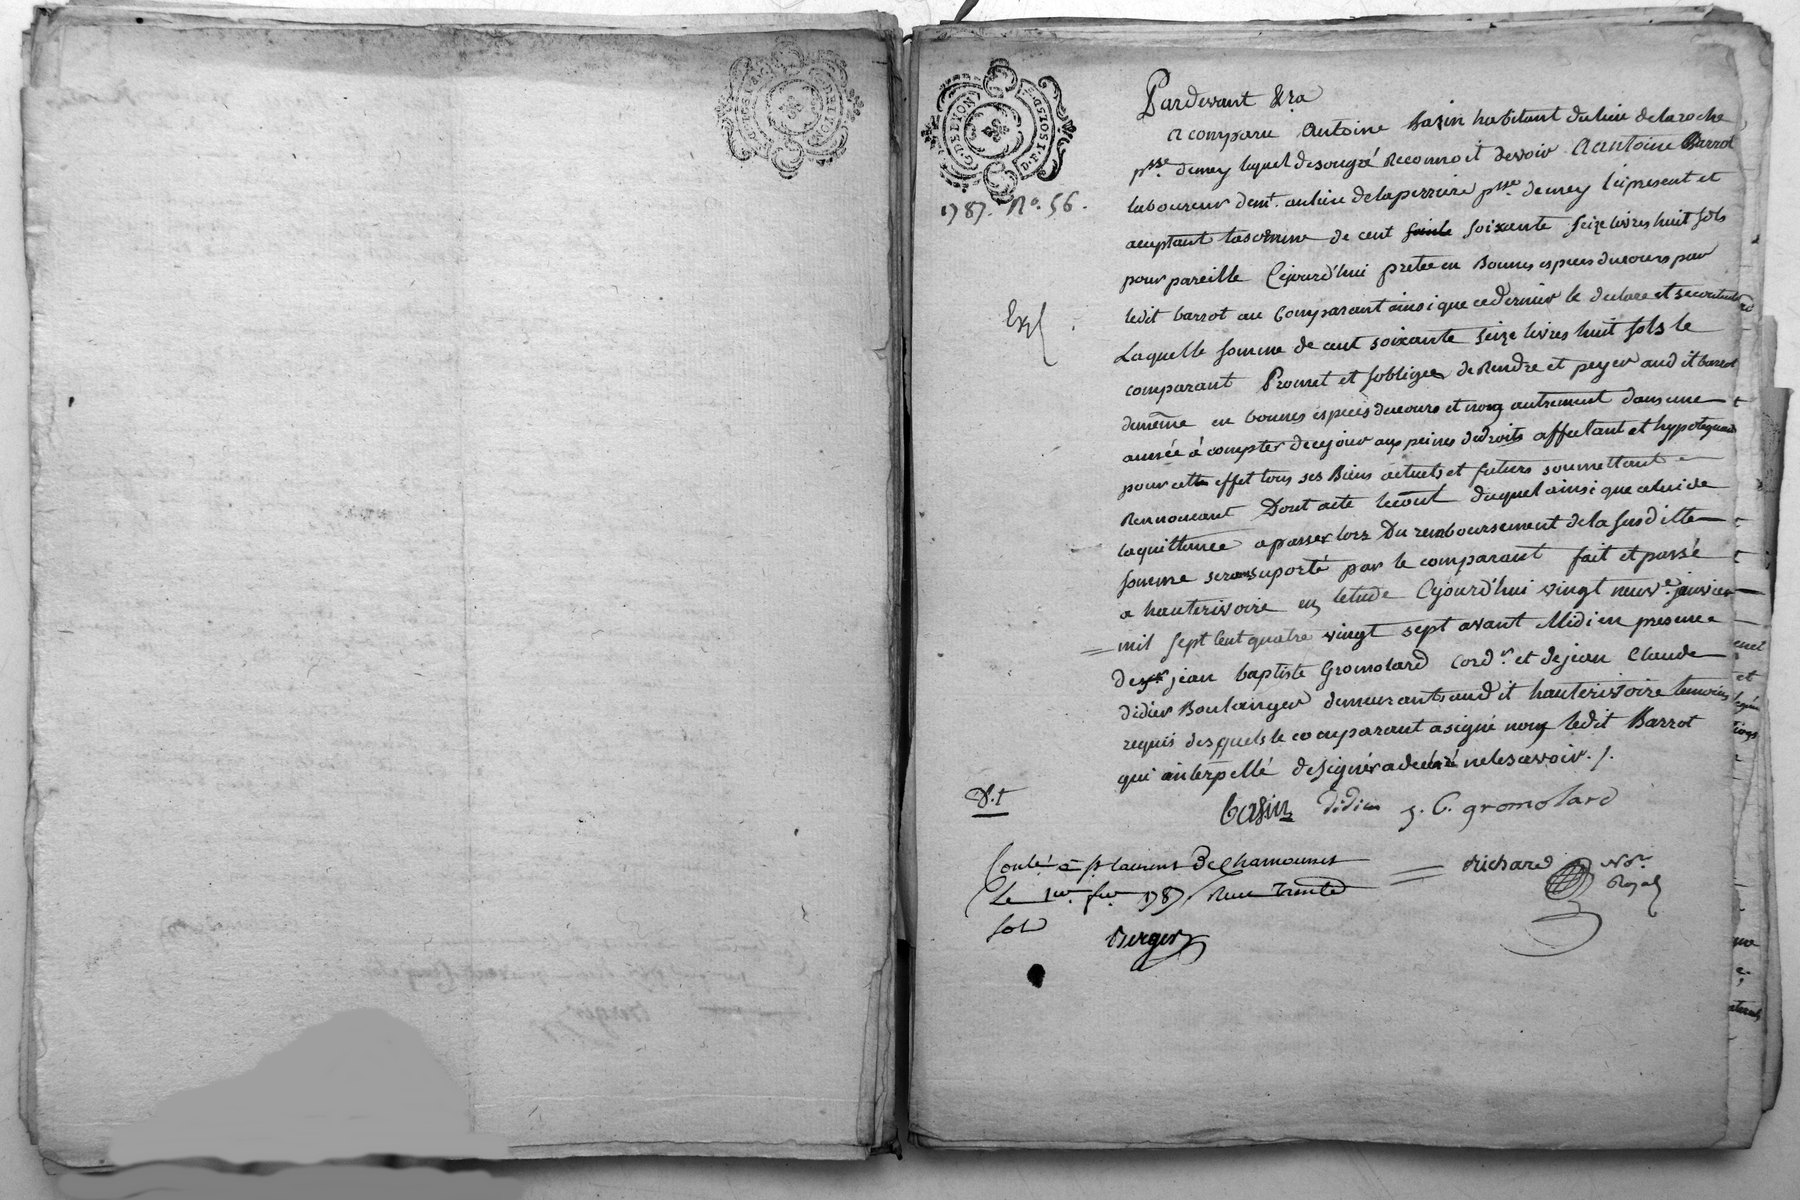 G. DE LYON
D.E. 1 SOL 5 D. 4
1787. No. 56.
Pardevant &ra
a comparu antoine Basin habitant du lieu de laroche
psse. demey lequel de son gré reconnoit devoir a antoine Barrot
laboureur demt. au lieu de laperriere psse. demey icipresent et
acceptant lasomme de cent soixante seize livres huit sols
pour pareille cejourd'hui pretée en Bonnes especes ducours par
ledit barrot au Comparant ainsique cedernier le declare et
Laquelle somme de cent soixante seize livres huit sols le
comparant Promet et s'obligee de Rendre et peyer aud it barrot
demême en bonnes especes ducours et non autrement dans une
année à compter decejour aux peines dedroits affectant et hypotequant
pour cette effet tous ses Biens actuels et futurs soumettant
Rennoncant Dont acte lecout duquel ainsi que celui de
laquittance apasser lors Du remboursement de la susditte
somme sera suporté par le comparant fait et passé
a hauterivoire en letude Cejourd'hui vingt neuve. janvier
mil sept cent quatre vingt sept avant Midi en presence
de sr jean baptiste Gromolard Cordr. et de jean Claude
didier Boulanger demeurants aud it hauterivoire temoins
requis desquels le comparant a signé non ledit Barrot
qui a interpellé designer adeclaré nelesavoir ./.
basin didier j. B. gromolard
Conlé. à st laurent De Chamousset
Le 1er. fer. 1787 Recu Trente
sols
Berger
Richard Nore. Royal